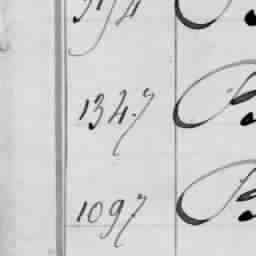 1347 B
1097 B